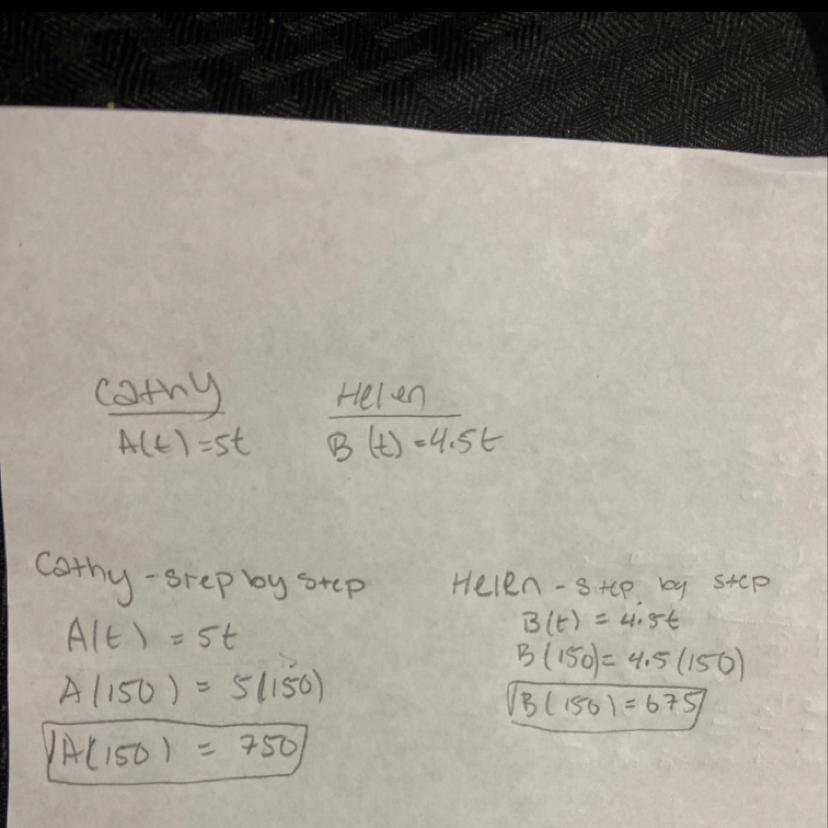 Cathy
A(t)=5t
Helen
B(t)=4.5t
Cathy - step by step
A(t) = 5t
A(150) = 5(150)
A(150) = 750
Helen - step by step
B(t) = 4.5t
B(150)= 4.5(150)
B(150)=675